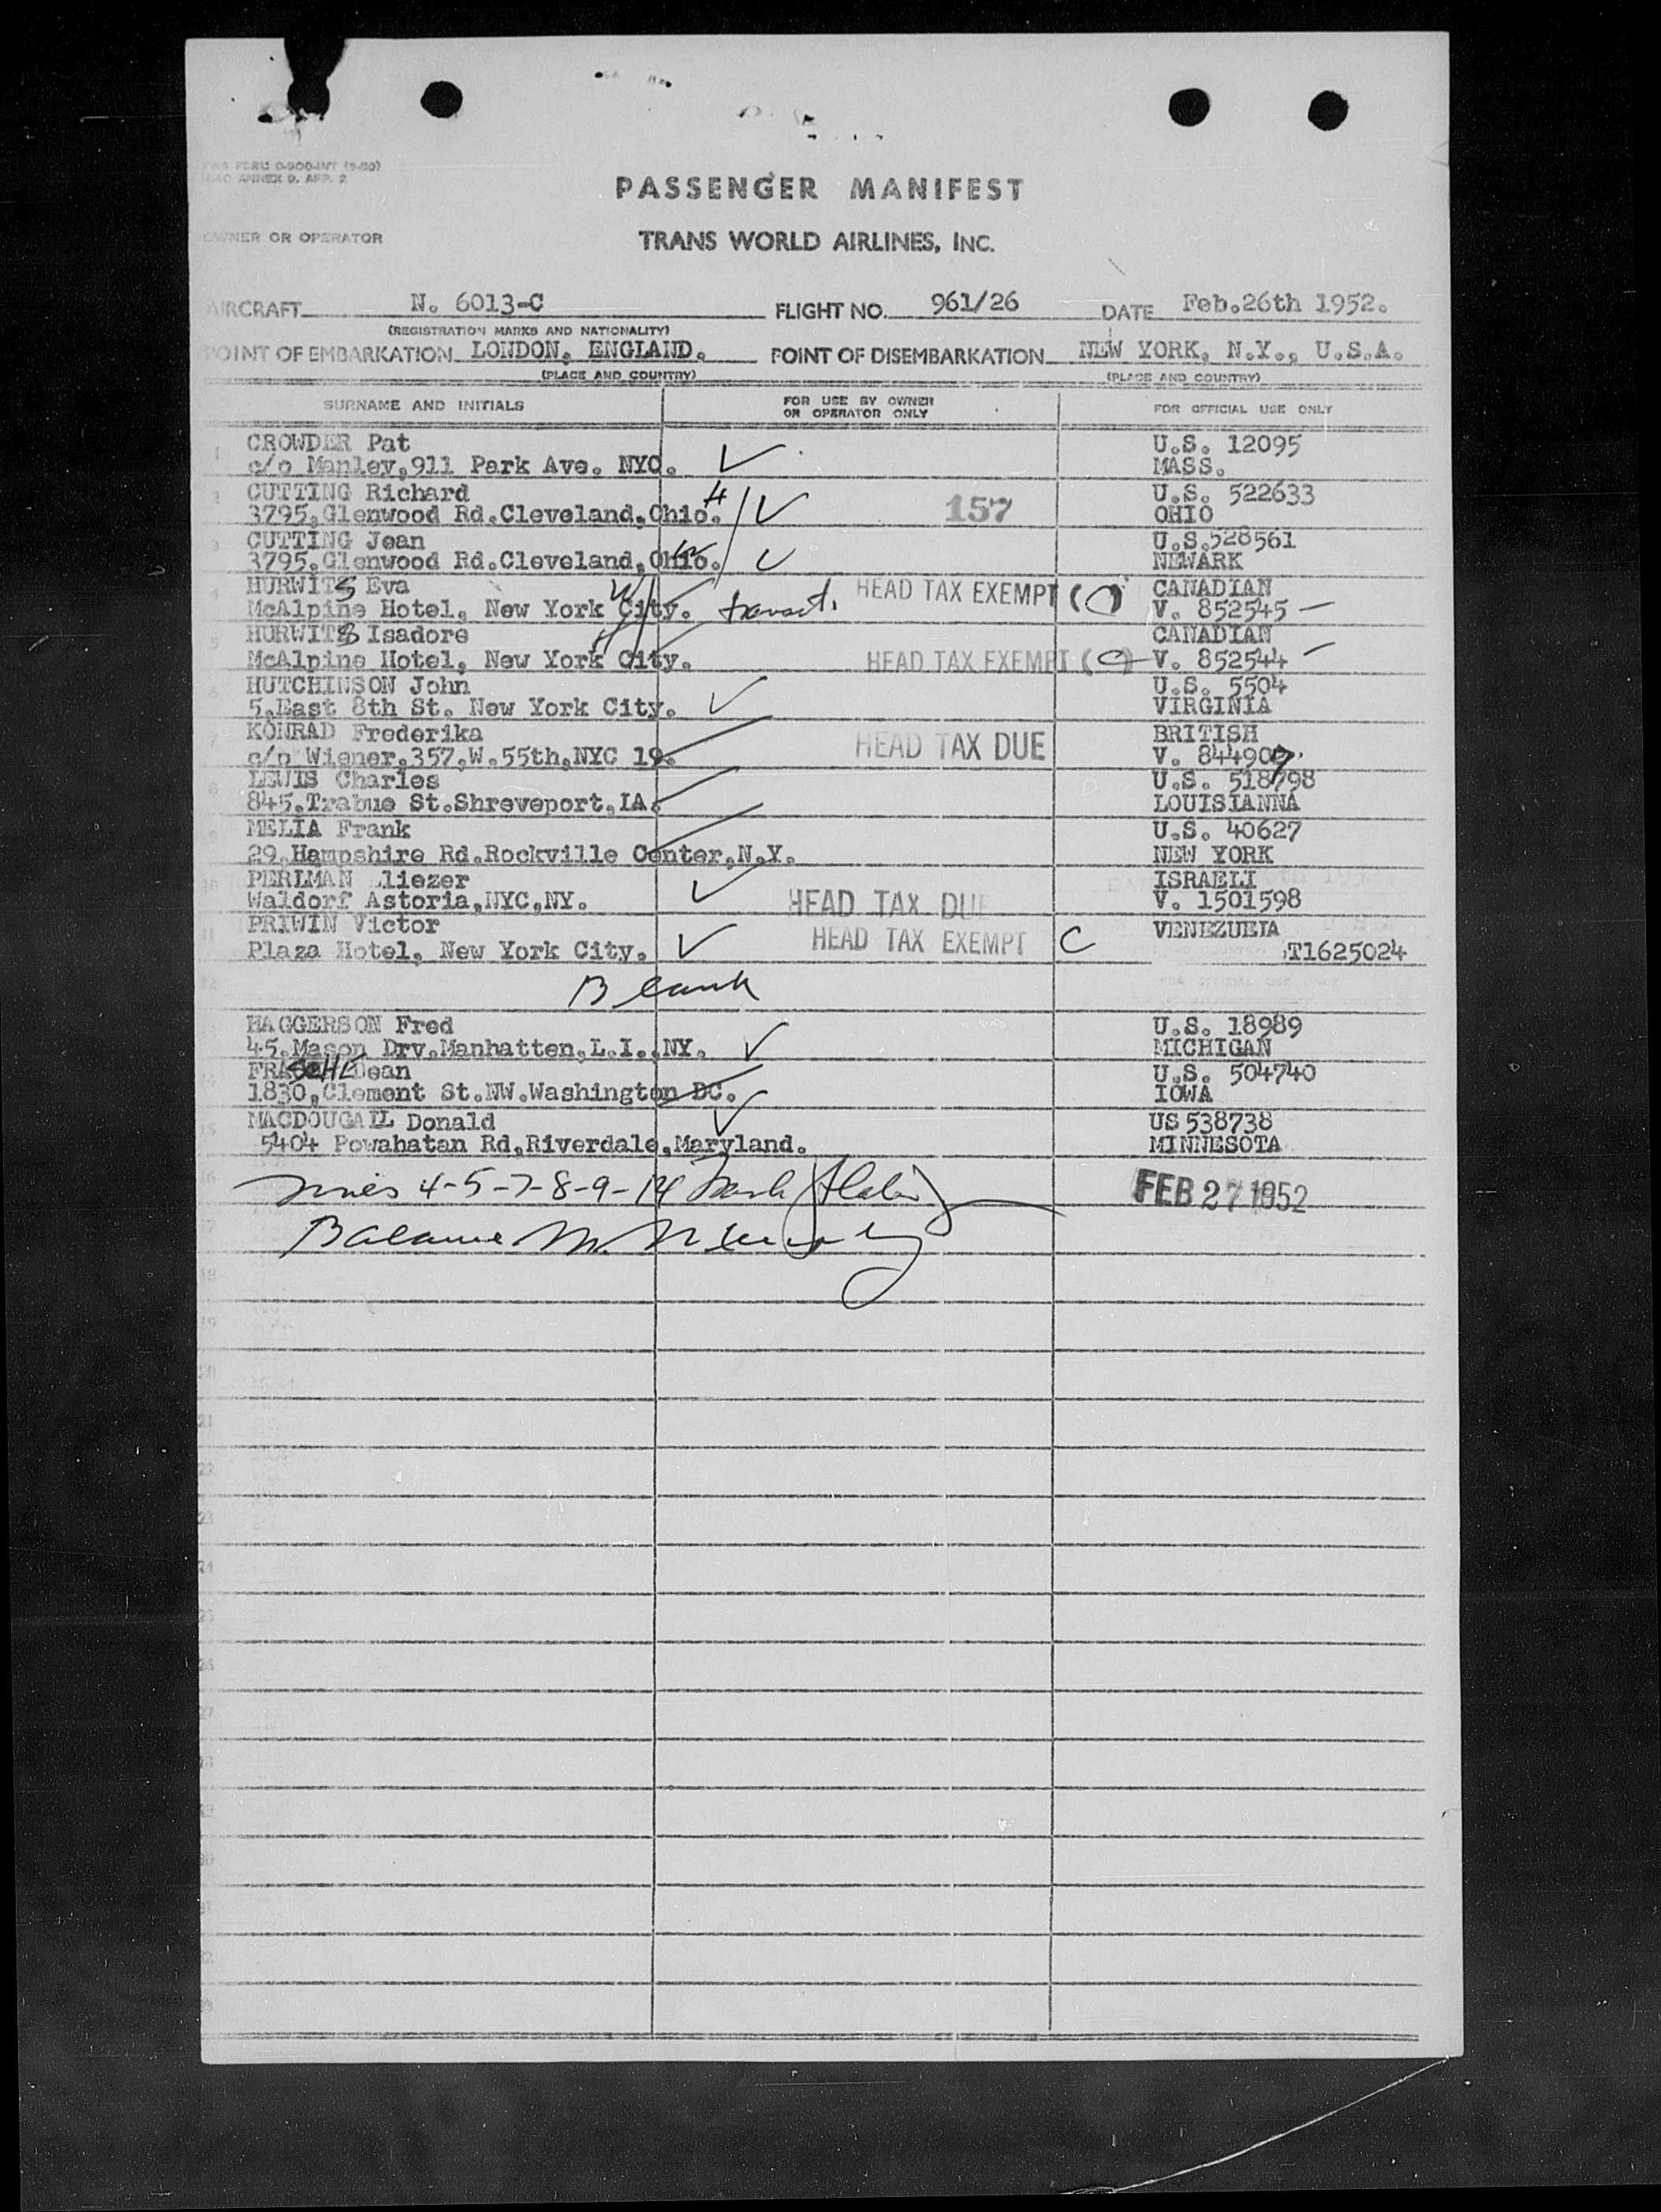 TWA FORM O-900-INT (9-50)
ICAO ANNEX 9, APP. 2
PASSENGER MANIFEST
OWNER OR OPERATOR
TRANS WORLD AIRLINES, INC.
AIRCRAFT N. 6013-C FLIGHT NO. 961/26 DATE Feb.26th 1952.
(REGISTRATION MARKS AND NATIONALITY)
POINT OF EMBARKATION LONDON, ENGLAND. POINT OF DISEMBARKATION NEW YORK, N.Y., U.S.A.
(PLACE AND COUNTRY) (PLACE AND COUNTRY)
SURNAME AND INITIALS FOR USE BY OWNER OR OPERATOR ONLY FOR OFFICIAL USE ONLY
1 CROWDER Pat U.S. 12095
c/o Manley,911 Park Ave. NYC. MASS.
2 CUTTING Richard U.S. 522633
3795,Glenwood Rd.Cleveland,Ohio. H 157 OHIO
3 CUTTING Jean U.S.528561
3795,Glenwood Rd.Cleveland,Ohio. W NEWARK
4 HURWITS Eva W HEAD TAX EXEMPT CANADIAN
McAlpine Hotel, New York City. transit. V. 852545
HURWITS Isadore H CANADIAN
McAlpine Hotel, New York City. HEAD TAX EXEMPT (C) V. 852544
6 HUTCHINSON John U.S. 5504
5,East 8th St. New York City. VIRGINIA
7 KONRAD Frederika BRITISH
c/o Wiener,357,W.55th,NYC 19. HEAD TAX DUE V. 844907
8 LEWIS Charles U.S. 518798
845,Trabue St.Shreveport,LA. LOUISIANNA
MELIA Frank U.S. 40627
29,Hampshire Rd.Rockville Center,N.Y. NEW YORK
10 PERLMAN Eliezer ISRAELI
Waldorf Astoria,NYC,NY. HEAD TAX DUE V. 1501598
11 PRIWIN Victor VENEZUELA
Plaza Hotel, New York City. HEAD TAX EXEMPT C T1625024
12 Blank
HAGGERSON Fred U.S. 18989
45,Mason Drv.Manhatten,L.I.,NY. MICHIGAN
14 FRASCHE Dean U.S. 504740
1830,Clement St.NW.Washington DC. IOWA
15 MACDOUGALL Donald US 538738
5404 Powahatan Rd,Riverdale,Maryland. MINNESOTA
16 4-5-7-8-9-14 FEB 27 1952
17 Balance
18
19
20
21
22
23
24
25
26
27
28
29
30
31
32
33